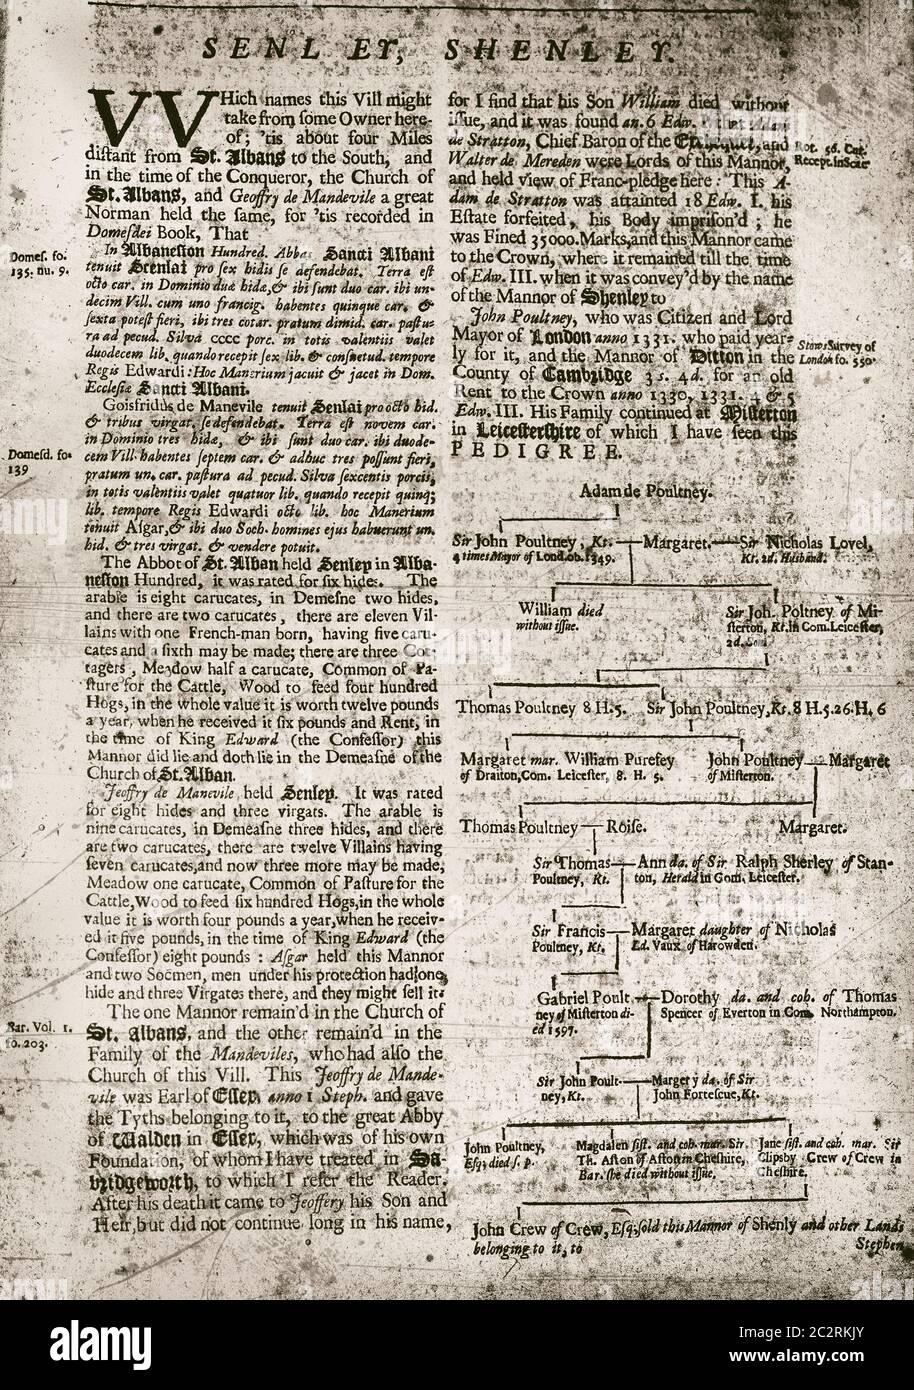 SENLEY, SHENLEY.
WHich names this Vill might
take from some Owner here-
of; 'tis about four Miles
distant from St. Albans to the South, and
in the time of the Conqueror, the Church of
St. Albans, and Geoffry de Mandevile a great
Norman held the same, for 'tis recorded in
Domesdei Book, That
Domes. fo.
135. nu. 9.
In Albaneston Hundred. Abbas Sancti Albani
tenuit Scenlai pro sex hidis se defendebat. Terra est
octo car. in Dominio duæ hidæ, & ibi sunt duo car. ibi un-
decim Vill. cum uno francig. habentes quinque car. &
sexta potest fieri, ibi tres cotar. pratum dimid. car. pastu-
ra ad pecud. Silva cccc porc. in totis valentiis valet
duodecem lib. quando recepit sex lib. & consuetud. tempore
Regis Edwardi: Hoc Manerium jacuit & jacet in Dom.
Ecclesiæ Sancti Albani.
Goisfridus de Manevile tenuit Senlai pro octo hid.
& tribus virgat. se defendebat. Terra est novem car.
in Dominio tres hidæ, & ibi sunt duo car. ibi duode-
cem Vill. habentes septem car. & adhuc tres possunt fieri,
Domesd. fo.
139
pratum un. car. pastura ad pecud. Silva sexcentis porcis,
in totis valentiis valet quatuor lib. quando recepit quinq;
lib. tempore Regis Edwardi octo lib. hoc Manerium
tenuit Asgar, & ibi duo Soch. homines ejus habuerunt un.
hid. & tres virgat. & vendere potuit.
The Abbot of St. Alban held Senley in Alba-
neston Hundred, it was rated for six hides. The
arable is eight carucates, in Demesne two hides,
and there are two carucates, there are eleven Vil-
lains with one French-man born, having five caru-
cates and a sixth may be made; there are three Cot-
tagers, Meadow half a carucate, Common of Pa-
sture for the Cattle, Wood to feed four hundred
Hogs, in the whole value it is worth twelve pounds
a year, when he received it six pounds and Rent, in
the time of King Edward (the Confessor) this
Mannor did lie and doth lie in the Demeasne of the
Church of St. Alban.
Jeoffry de Manevile held Senley. It was rated
for eight hides and three virgats. The arable is
nine carucates, in Demeasne three hides, and there
are two carucates, there are twelve Villains having
seven carucates, and now three more may be made,
Meadow one carucate, Common of Pasture for the
Cattle, Wood to feed six hundred Hogs, in the whole
value it is worth four pounds a year, when he receiv-
ed it five pounds, in the time of King Edward (the
Confessor) eight pounds: Asgar held this Mannor
and two Socmen, men under his protection had one
hide and three Virgates there, and they might sell it.
The one Mannor remain'd in the Church of
Bar. Vol. 1.
fo. 203.
St. Albans, and the other remain'd in the
Family of the Mandeviles, who had also the
Church of this Vill. This Jeoffry de Mande-
vile was Earl of Essex, anno 1 Steph. and gave
the Tyths belonging to it, to the great Abby
of Walden in Essex, which was of his own
Foundation, of whom I have treated in Sa-
bridgeworth, to which I refer the Reader.
After his death it came to Jeoffery his Son and
Heir, but did not continue long in his name,
for I find that his Son William died without
issue, and it was found an. 6 Edw. that Adam
de Stratton, Chief Baron of the Exchequer, and
Walter de Mereden were Lords of this Mannor,
Rot. 56. Cur.
Recept. in Scac
and held view of Franc-pledge here: This A-
dam de Stratton was attainted 18 Edw. I. his
Estate forfeited, his Body imprison'd; he
was Fined 35000. Marks, and this Mannor came
to the Crown, where it remained till the time
of Edw. III. when it was convey'd by the name
of the Mannor of Shenley to
John Poultney, who was Citizen and Lord
Mayor of London anno 1331. who paid year-
ly for it, and the Mannor of Ditton in the
Stows Survey of
London fo. 550.
County of Cambridge 3 s. 4 d. for an old
Rent to the Crown anno 1330, 1331. 4 & 5
Edw. III. His Family continued at Misterton
in Leicestershire of which I have seen this
PEDIGREE.
Adam de Poultney.
Sir John Poultney, Kt. Margaret. Sir Nicholas Lovel,
4 times Mayor of Lond. ob. 1349. Kt. 2d. Husband.
William died Sir Joh. Poltney of Mi-
without issue. sterton, Kt. in Com. Leicester,
2d. Son.
Thomas Poultney 8 H. 5. Sir John Poultney, Kt. 8 H. 5. 26. H. 6
Margaret mar. William Purefey John Poultney Margaret
of Draiton, Com. Leicester, 8. H. 5. of Misterton.
Thomas Poultney Roise. Margaret.
Sir Thomas Ann da. of Sir Ralph Sherley of Stan-
Poultney, Kt. ton, Herald in Com. Leicester.
Sir Francis Margaret daughter of Nicholas
Poultney, Kt. Ld. Vaux of Harowden.
Gabriel Poult- Dorothy da. and coh. of Thomas
ney of Misterton di- Spencer of Everton in Com. Northampton.
ed 1597.
Sir John Poult- Margery da. of Sir
ney, Kt. John Fortescue, Kt.
John Poultney, Magdalen sist. and coh. mar. Sir Jane sist. and coh. mar. Sir
Esq; died s. p. Th. Aston of Aston in Cheshire, Clipsby Crew of Crew in
Bar. she died without issue, Cheshire.
John Crew of Crew, Esq; sold this Mannor of Shenly and other Lands
belonging to it, to
Stephen
alamy
Image ID: 2C2RKJY
www.alamy.com